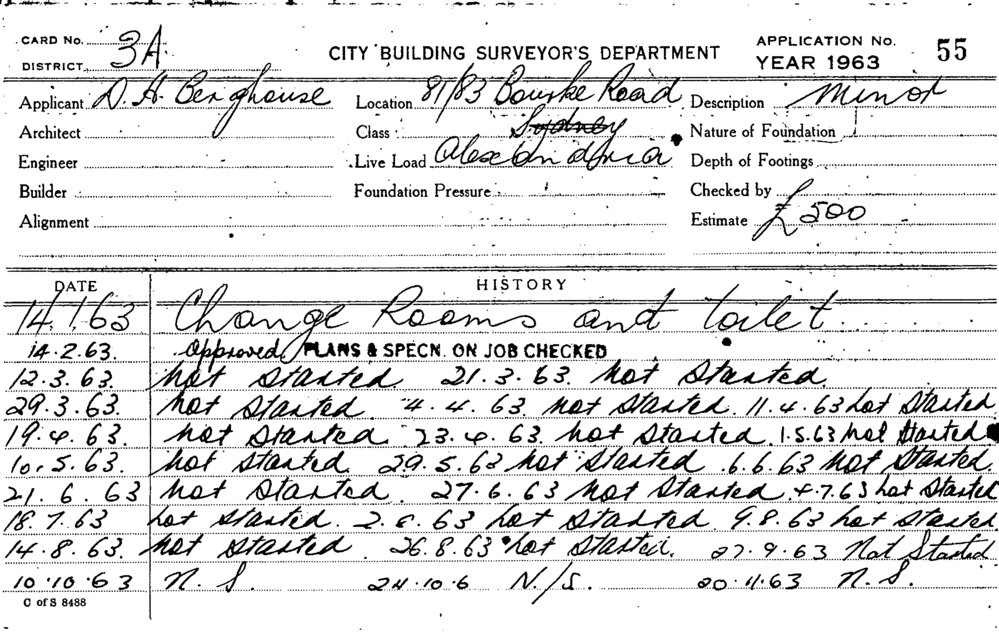 CARD No. 3A CITY BUILDING SURVEYOR'S DEPARTMENT APPLICATION No. 55
DISTRICT YEAR 1963
Applicant D. H. Berghouse Location 81/83 Bourke Road Description Minor
Architect Class Sydney Nature of Foundation
Engineer Live Load Alexandria Depth of Footings
Builder Foundation Pressure Checked by
Alignment Estimate £500
DATE HISTORY
14.1.63 Change Rooms and toilet
14.2.63. Approved PLANS & SPECN. ON JOB CHECKED
12.3.63. Not Started 21.3.63. Not Started.
29.3.63. Not Started. 4.4.63. Not Started. 11.4.63 Not Started
19.4.63. Not Started 23.4.63. Not Started. 1.5.63 Not Started
10.5.63. Not Started. 29.5.63 Not Started. 6.6.63 Not Started.
21.6.63 Not Started. 27.6.63 Not Started. 4.7.63 Not Started
18.7.63 Not Started. 2.8.63 Not Started. 9.8.63 Not Started.
14.8.63. Not Started. 26.8.63 Not Started. 27.9.63 Not Started
10.10.63 N. S. 24.10.6 N./S. 20.11.63 N. S.
C of S 8488